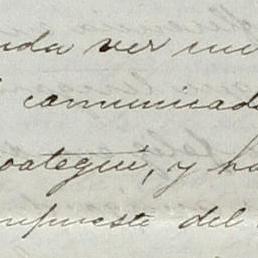 uda ver
comunicado
oategui, y ha
mpuesto del